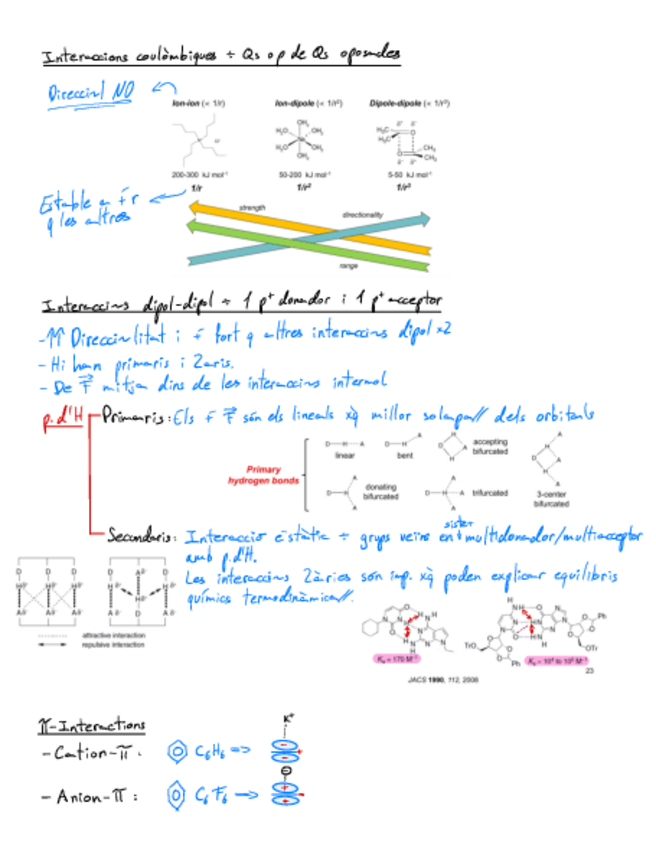 Interaccions coulòmbiques ÷ Qs o p de Qs oposades
Direccinl NO
Ion-ion (∝ 1/r)
Ion-dipole (∝ 1/r²)
Dipole-dipole (∝ 1/r³)
200-300 kJ mol⁻¹
50-200 kJ mol⁻¹
5-50 kJ mol⁻¹
1/r
1/r²
1/r³
Estable a + r
q les altres
strength
directionality
range
Interaccins dipol-dipol ÷ 1 p⁺ donador i 1 p⁺ acceptor
-↑↑ Direccinlitat i + fort q altres interaccins dipol x2
- Hi han primaris i 2aris.
- De F mitja dins de les interaccins intermol
p. d'H
Primaris: Els + F són els lineals xq millor solapa// dels orbitals
Primary
hydrogen bonds
linear
bent
accepting
bifurcated
donating
bifurcated
trifurcated
3-center
bifurcated
Secundaris: Interacció estàtic ÷ grups veïns en sister multidonador/multiacceptor
amb p.d'H.
Les interaccins 2àries són imp. xq poden explicar equilibris
químics termodinàmica//.
attractive interaction
repulsive interaction
Kₐ = 170 M⁻¹
Kₐ = 10⁴ to 10⁵ M⁻¹
23
JACS 1990, 112, 2008
π-Interactions
K⁺
- Cation-π: C₆H₆ =>
- Anion-π: C₆F₆ →